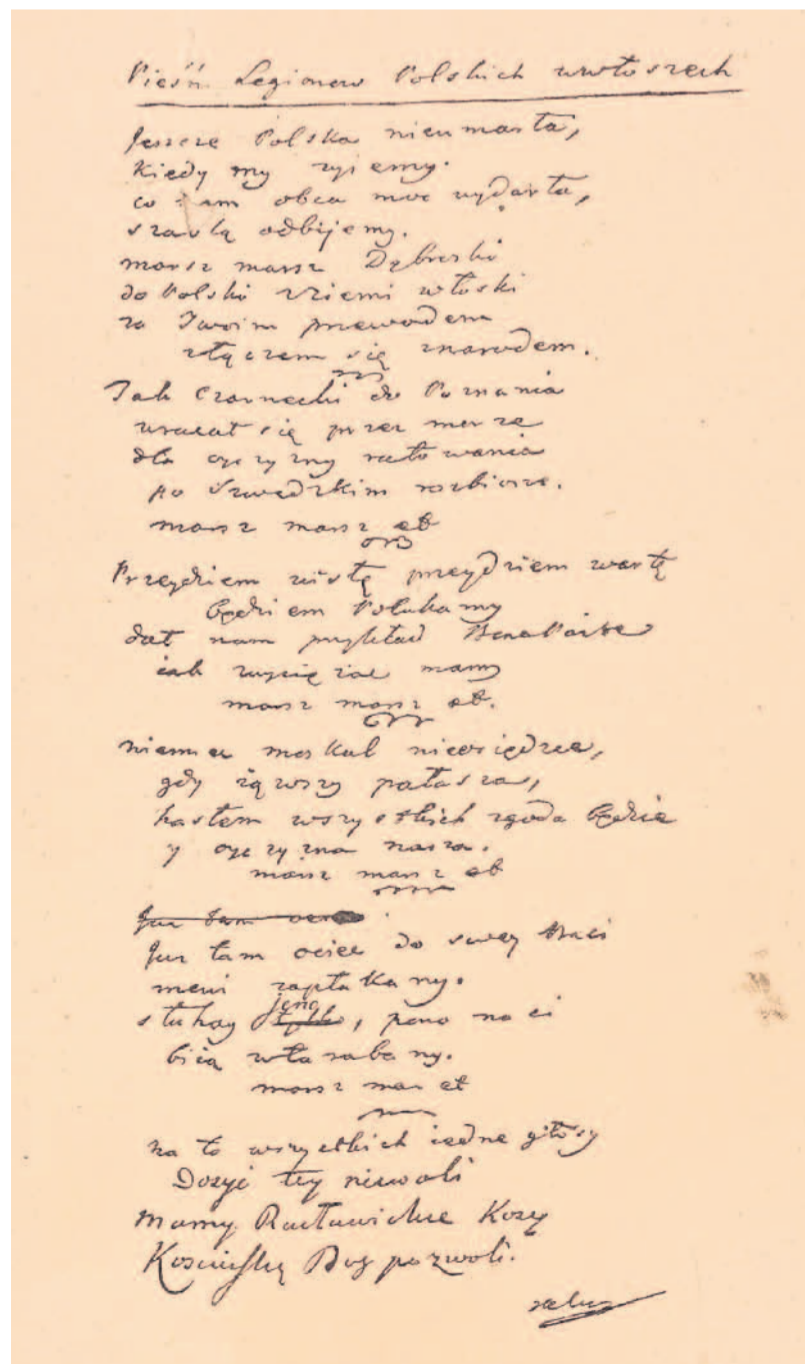 Pieśń Legionow Polskich wewłoszech
Jeszcze Polska nieumarła,
kiedy my zyiemy.
co nam obca moc wydarła,
szablą odbijemy.
marsz marsz Dąbroski
do Polski zziemi włoski
za Twoim przewodem
złączem się znarodem.
Jak Czarnecki do Poznania
wracał się przez morze
dla oyczyzny ratowania
po Szwedzkim rozbiorze.
marsz marsz et
Przeydziem wisłę przeydziem wartę
będziem Polakamy
dał nam przykład Bonaparte
iak zwycięzac mamy
marsz marsz et.
niemiec moskal nieosiędzie,
gdy iąwszy pałasza,
hasłem wszystkich zgoda będzie
y oyczyzna nasza.
marsz marsz et
Juz tam
Juz tam ociec do swey Basi
mowi zapłakany.
słuhay jeno tylko, pono nasi
biią wtarabany.
marsz mar et
na to wszystkich iedne głosy
Dosyć tey niewoli
mamy Racławickie Kosy
Kosciuszkę Bog pozwoli.